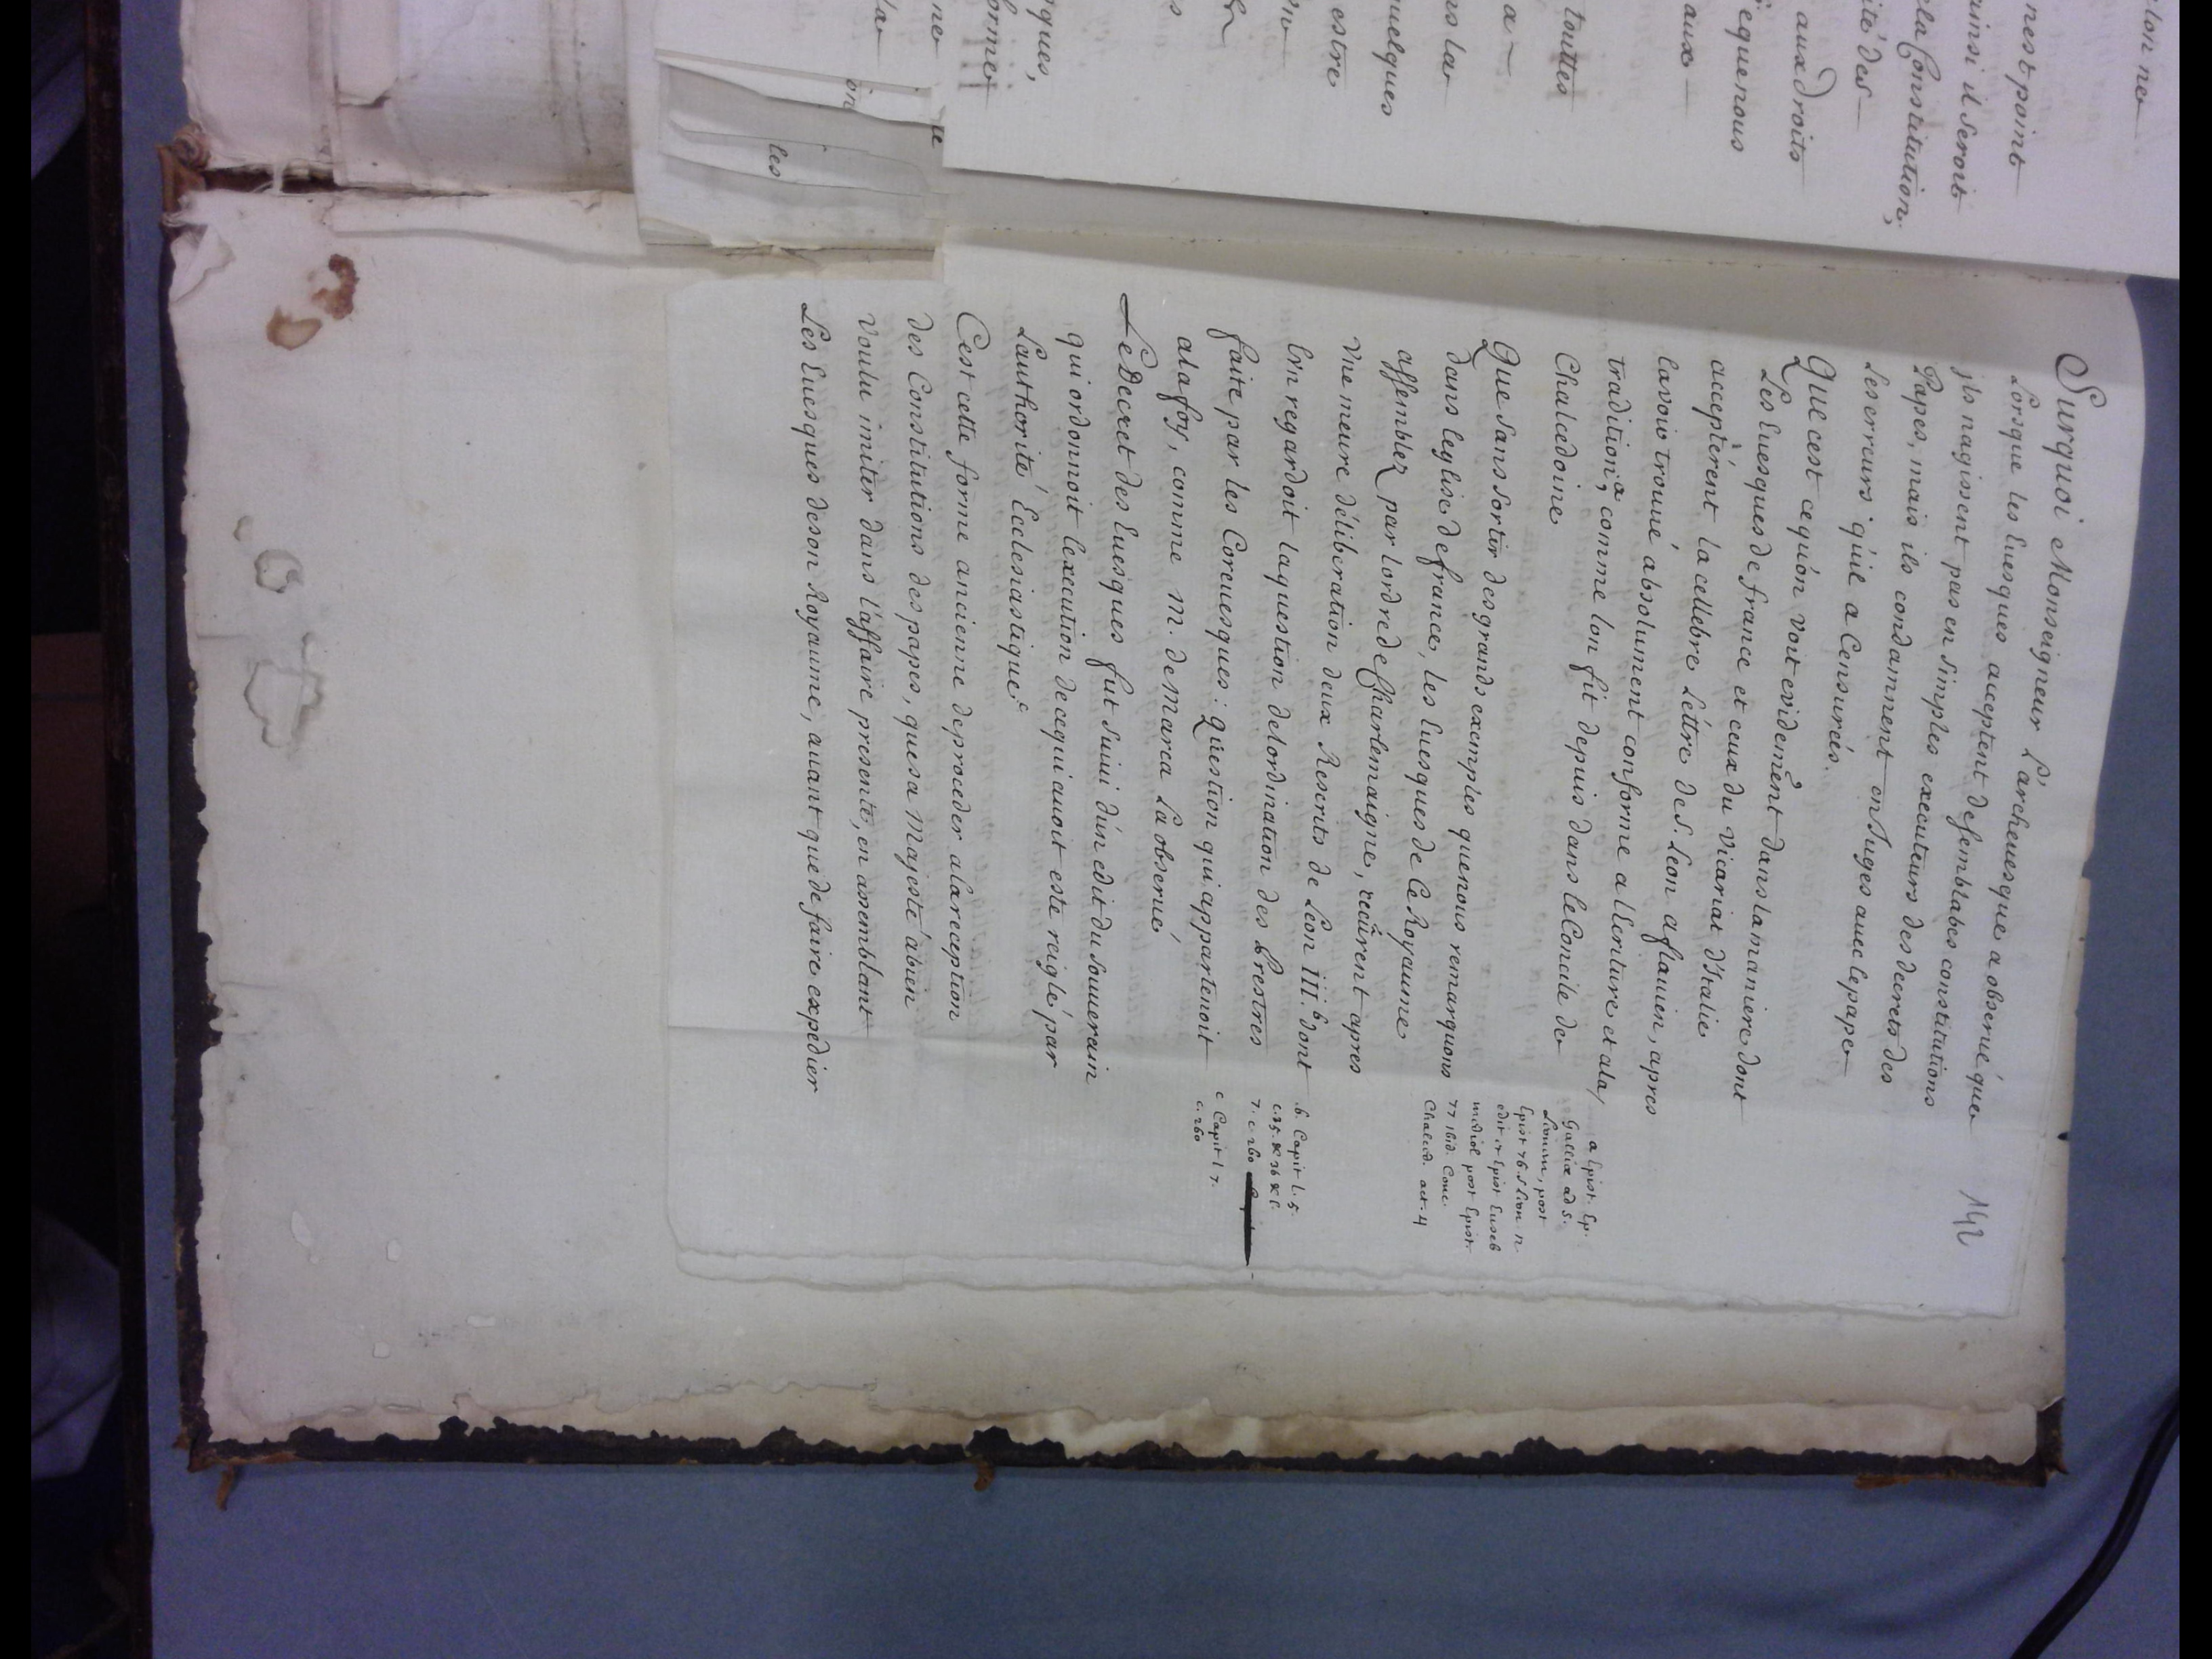 142
Surquoi Monseigneur L'archeuesque a obserué que
Lorsque les Euesques acceptent de semblabes constitutions
jls nagissent pas en simples executeurs des decrets des
Papes, mais ils condamnent en Juges auec le pape
Les erreurs qu'il a Censureés.
Que cest ce qu'on voit evidemẽnt dans la maniere dont
Les Euesques de france et ceux du Vicariat d'Italie
acceptèrent la cellebre Léttre de S. Leon a flauien, apres
lavoir trouué absolument conforme a lEcriture et ala
tradition,ᵃ comme lon fit depuis dans le Concile de
Chalcedoine
Que sans sortir des grands exemples que nous remarquons
dans leglise de france, les Euesques de Ce Royaume
assemblez par lordre de Charlemaigne, receürent apres
vne meure déliberation deux Rescrits de Leon III.ᵇ dont
L'vn regardoit la question de lordination des Prestres
faite par les Coreuesques : question qui appartenoit
ala foy, comme M. de Marca La obserué
Le Decret des Euesques fut suiui d'ún edit du souuerain
qui ordonnoit lexecution de ce qui auoit esté reiglé par
Lauthorité Ecclesiastique.ᶜ
Cest cette forme ancienne de proceder ala reception
des Constitutions des papes, que sa Majesté abien
Voulu imiter dans l'affaire presente, en assemblant
Les Euesques de son Royaume, auant que de faire expedier
a Epist. Ep.
Galliæ ad S.
Leonem, post
Epist 76. S Leon. n
edit et Epist Euseb
mediol post Epist.
77 ibid. Conc.
Chalced. act. 4
b. Capit l. 5
c. 35. & 36 & l.
7. c 260
c Capit l 7.
c. 260
lon ne
nest point
ainsi il seroit
la Constitution,
ité des
aux droits
equenous
aux
touttes
a
ns la
uelques
estre
ques,
orme
ne
la
on
les